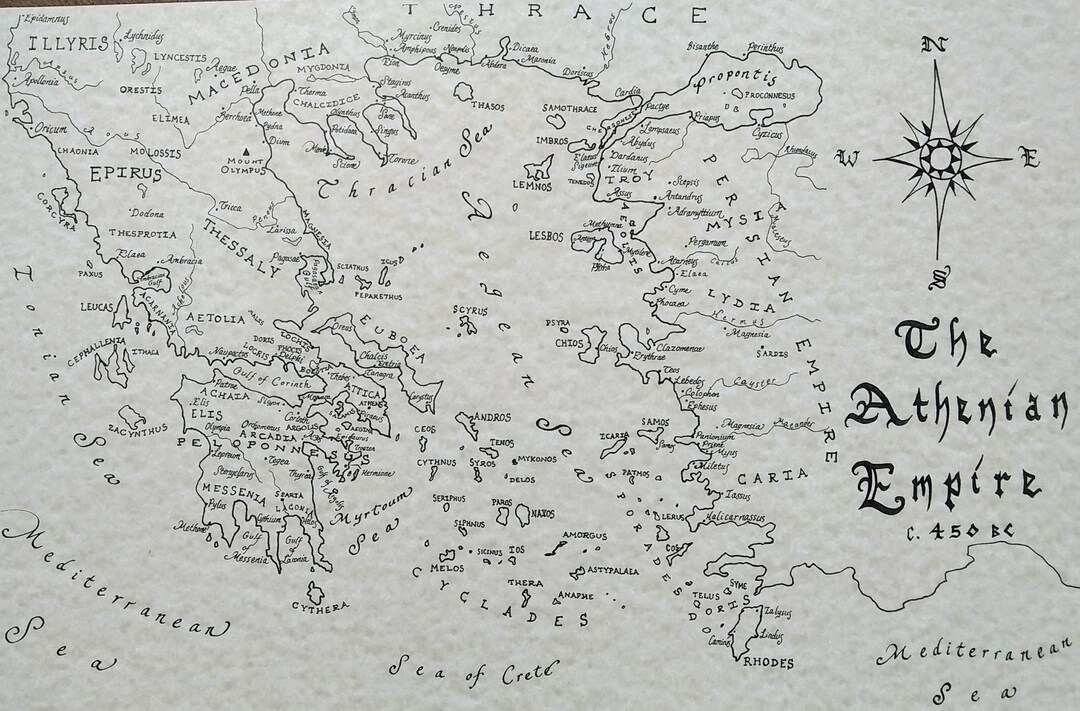 THRACE
Epidamnus
ILLYRIS
Lychnidus
LYNCESTIS
Aegae
MACEDONIA
MYGDONIA
Myrcinus
Crenides
Amphipolis
Neapolis
Eion
Oesyme
Abdera
Dicaea
Maronia
Doriscus
Hebrus
Bisanthe
Perinthus
Propontis
PROCONNESUS
Apollonia
ORESTIS
Pella
Therma
CHALCIDICE
Stagirus
Acanthus
THASOS
SAMOTHRACE
Cardia
Pactye
Priapus
Cyzicus
ELIMEA
Berrhoea
Methone
Pydna
Dium
Olynthus
Potidaea
Sane
Singus
Mende
Scione
Torone
IMBROS
Lampsacus
Abydus
Dardanus
Ilium
TROY
Elaeus
Sigeum
TENEDOS
LEMNOS
Rhyndacus
Oricum
Aous
CHAONIA
MOLOSSIS
EPIRUS
MOUNT
OLYMPUS
Thracian Sea
Aegean Sea
PERSIAN EMPIRE
Scepsis
Assus
Antandrus
Adramyttium
MYSIA
Macestus
CORCYRA
Dodona
THESPROTIA
Tricca
Peneus
Larissa
MAGNESIA
THESSALY
LESBOS
Methymna
Antissa
Mytilene
Pyrrha
AEOLIS
Pergamum
Caicus
Atarneus
Elaea
Cyme
Phocaea
LYDIA
Hermus
Magnesia
SARDIS
Ionian Sea
PAXUS
Elaea
Ambracia
Ambracian
Gulf
Pagasae
Pagasaean
Gulf
SCIATHUS
ICUS
PEPARETHUS
SCYRUS
PSYRA
CHIOS
Chios
Clazomenae
Erythrae
LEUCAS
ACARNANIA
Achelous
AETOLIA
MALIS
DORIS
LOCRIS
PHOCIS
LOCRIS
Delphi
Naupactus
EUBOEA
Oreus
Chalcis
Eretria
Tanagra
Thebes
BOEOTIA
Carystus
CEPHALLENIA
ITHACA
Gulf of Corinth
Patrae
ACHAIA
Sicyon
Megara
ATTICA
ATHENS
Piraeus
Teos
Lebedos
Colophon
Ephesus
Cayster
ZACYNTHUS
Elis
ELIS
Olympia
Orchomenus
Corinth
ARGOLIS
AEGINA
Epidaurus
Troezen
Hermione
ARCADIA
PELOPONNESUS
Lepreum
Tegea
Stenyclarus
Thyrea
CEOS
ANDROS
TENOS
CYTHNUS
SYROS
MYKONOS
DELOS
ICARIA
SAMOS
Samos
Magnesia
Maeander
Panionium
Priene
Myus
Miletus
CARIA
PATMOS
Iassus
MESSENIA
SPARTA
LACONIA
Pylus
Gythium
Helos
Methone
Gulf
of
Messenia
Gulf
of
Laconia
Gulf of Argolis
Myrtoum
Sea
SERIPHUS
SIPHNUS
PAROS
NAXOS
LERUS
Halicarnassus
COS
SPORADES
AMORGUS
MELOS
SICINUS
IOS
ASTYPALAEA
THERA
ANAPHE
CYCLADES
CYTHERA
Mediterranean
Sea
Sea of Crete
SYME
TELUS
DORIS
Ialysus
Lindus
Camirus
RHODES
Mediterranean
Sea
N
W
E
S
The
Athenian
Empire
c. 450 BC